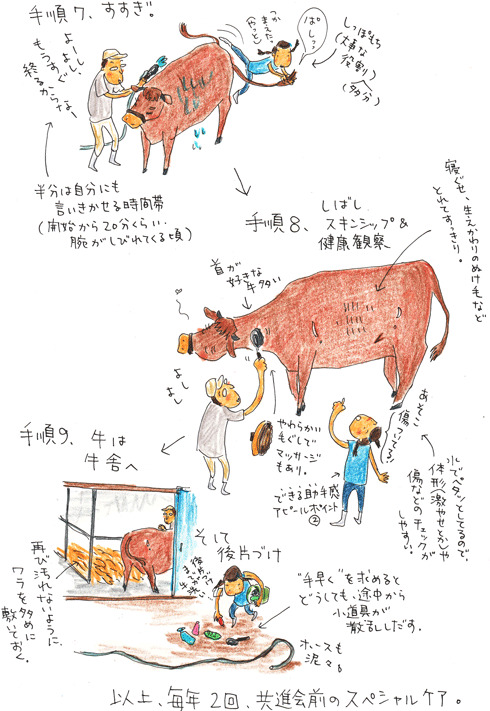 手順7、すすぎ。
よーしよし
もうすぐ
終るからなー
つかまえた、
やっと
ぱし?
しっぽもち
(大事な
役割)
(多分)
半分は自分にも
言いきかせる時間帯
(開始から20分くらい.
腕がしびれてくる頃)
手順8、
しばし、
スキンシップ&
健康観察
寝ぐせ、生えかわりのぬけ毛など
とれてすっきり。
首が
好きな
牛多い
よし
よし
やわらかい
毛ぐしで
マッサージ
もあり。
あそこ
傷ついてる!
できる助手感
アピールポイント
②
水でペタンとしてるので、
体形激やせとかや
傷などのチェックが
しやすい。
手順9、牛は
牛舎へ
再び汚れないように、
ワラを多めに
敷いておく。
そして
後片づけ
"手早く"を求めると
どうしても、途中から
小道具が
散乱しだす。
ホースも
泥々
以上、毎年2回、共進会前のスペシャルケア。